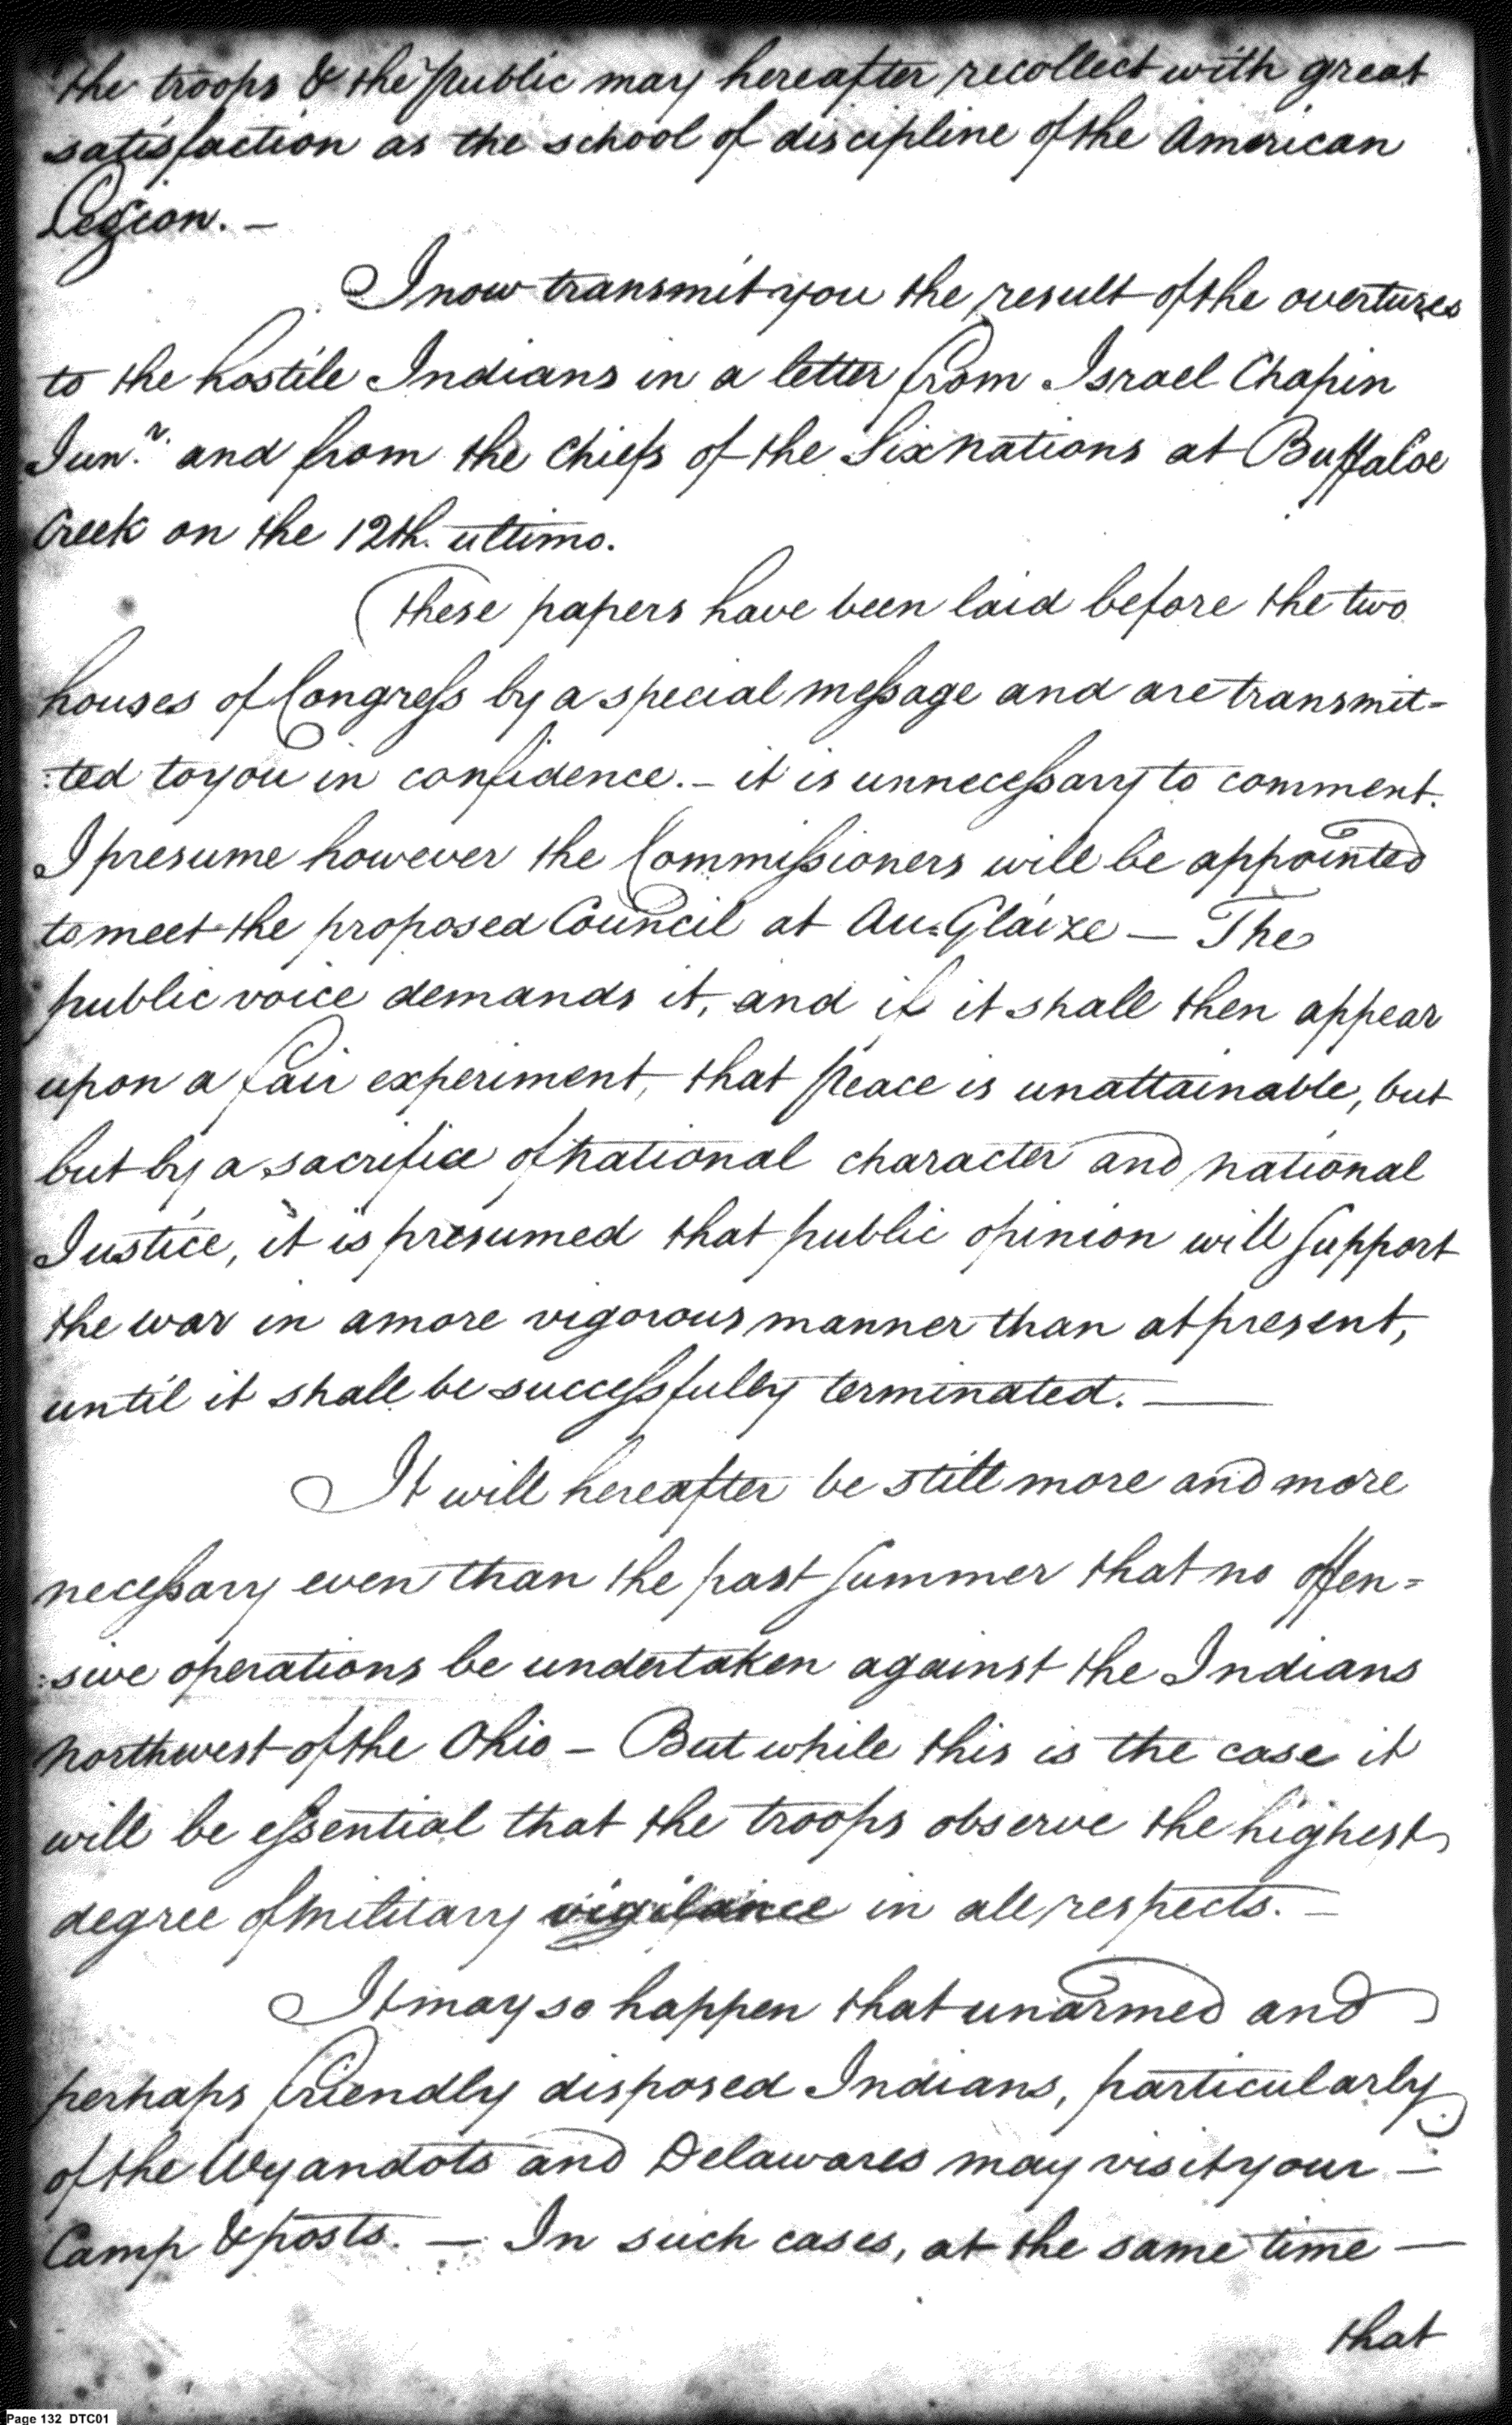 the troops & the public may hereafter recollect with great
satisfaction as the school of discipline of the American
Legion. —
I now transmit you the result of the overtures
to the hostile Indians in a letter from Israel Chapin
Junr. and from the Chiefs of the Six nations at Buffaloe
Creek on the 12th. ultimo.
These papers have been laid before the two
houses of Congress by a special message and are transmit-
:ted to you in confidence. – it is unnecessary to comment.
I presume however the Commissioners will be appointed
to meet the proposed Council at Au=Glaize — The
public voice demands it, and if it shall then appear
upon a fair experiment, that peace is unattainable, but
but by a sacrifice of national character and national
Justice, it is presumed that public opinion will support
the war in a more vigorous manner than at present,
until it shall be successfully terminated. —
It will hereafter be still more and more
necessary even than the past summer that no offen=
:sive operations be undertaken against the Indians
northwest of the Ohio – But while this is the case it
will be essential that the troops observe the highest
degree of military vigilance in all respects. —
It may so happen that unarmed and
perhaps friendly disposed Indians, particularly
of the Wyandots and Delawares may visit your —
Camp & posts. — In such cases, at the same time —
that
Page 132 DTC01